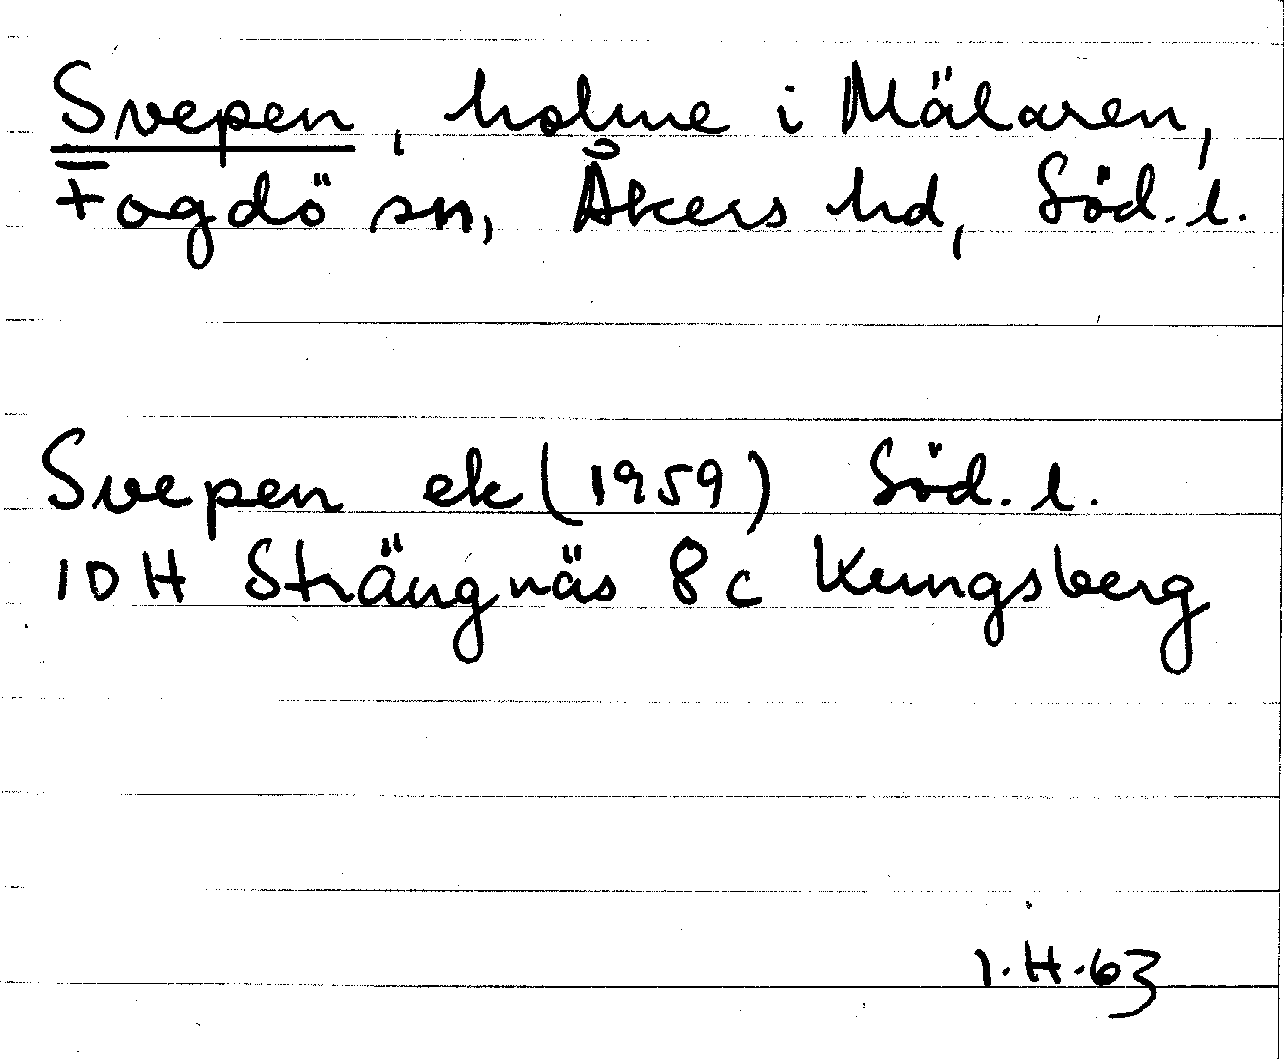 Svepen, holme i Mälaren,
Fogdö sn, Åkers hd, Söd. l.
Svepen ek (1959) Söd. l.
10 H Strängnäs 8c Kungsberg
I.H.63